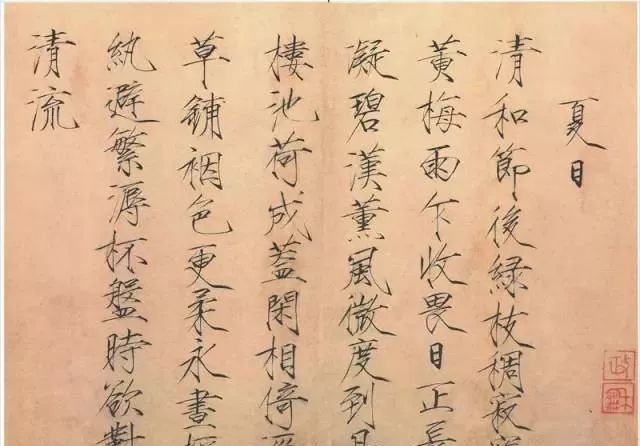 夏日
清和節後緑枝稠寂
黄梅雨乍收畏日正長
凝碧漢薰風微度到
樓池荷成蓋閑相倚
草鋪裀色更柔永晝
紈避繁溽杯盤時欲對
清流